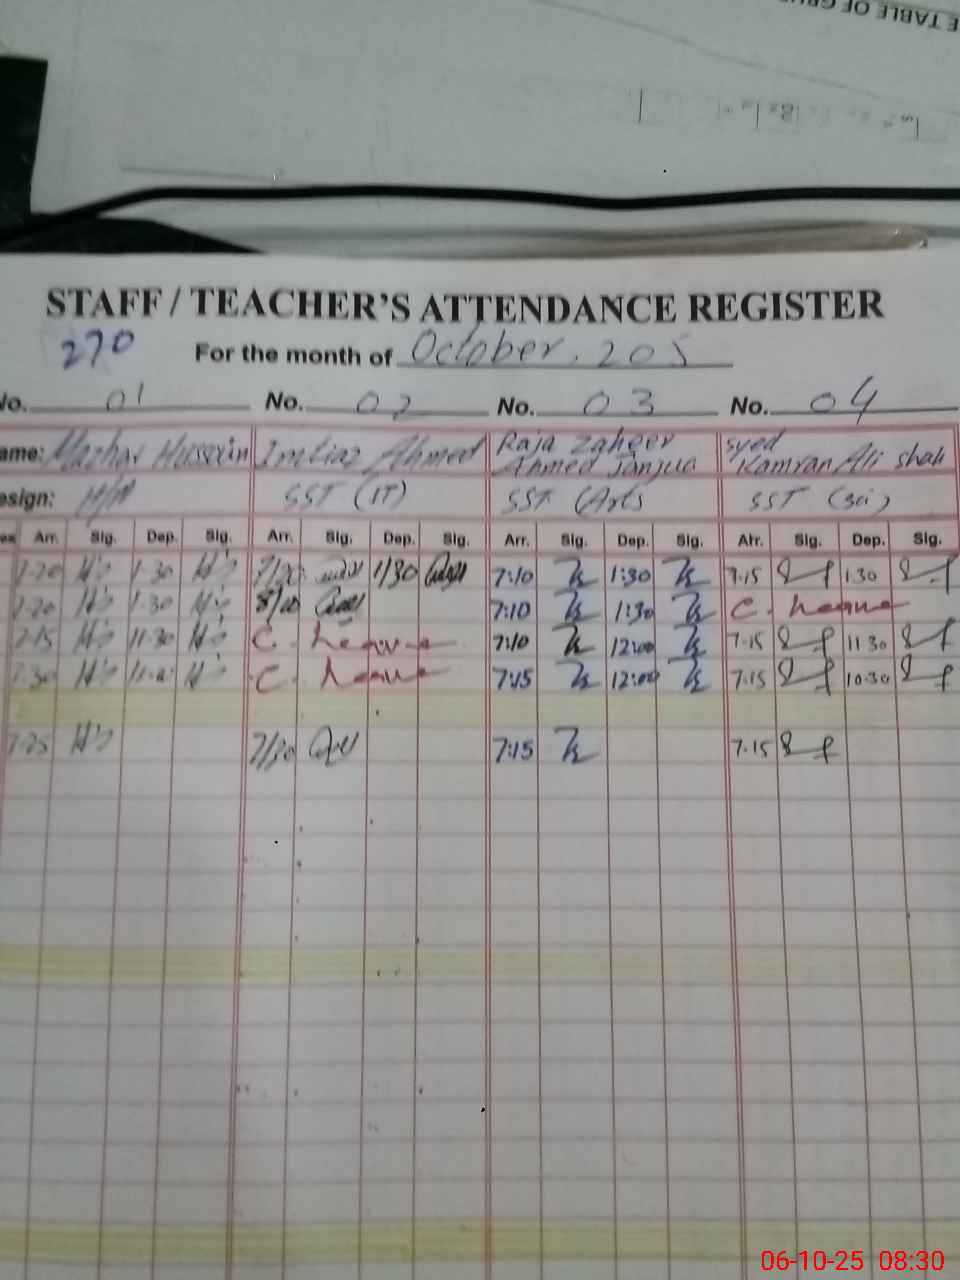 E TABLE OF
STAFF / TEACHER'S ATTENDANCE REGISTER
270
For the month of October. 205
No. 01 No. 02 No. 03 No. 04
ame: Mazhar Hussain Imtiaz Ahmed Raja Zaheer Ahmed Janjua Syed Kamran Ali Shah
esign: H/M SST (IT) SST (Arts SST (Sci)
Arr. Sig. Dep. Sig. Arr. Sig. Dep. Sig. Arr. Sig. Dep. Sig. Arr. Sig. Dep. Sig.
7-20 1.30 1/30 7:10 1:30 7.15 1.30
7-20 1.30 7:10 1:30 C. Leave
7-15 11.30 C. Leave 7:10 12:00 7.15 11 30
7.30 C. Leave 7:15 12:00 7.15 10.30
7.25 7:15 7.15
06-10-25 08:30